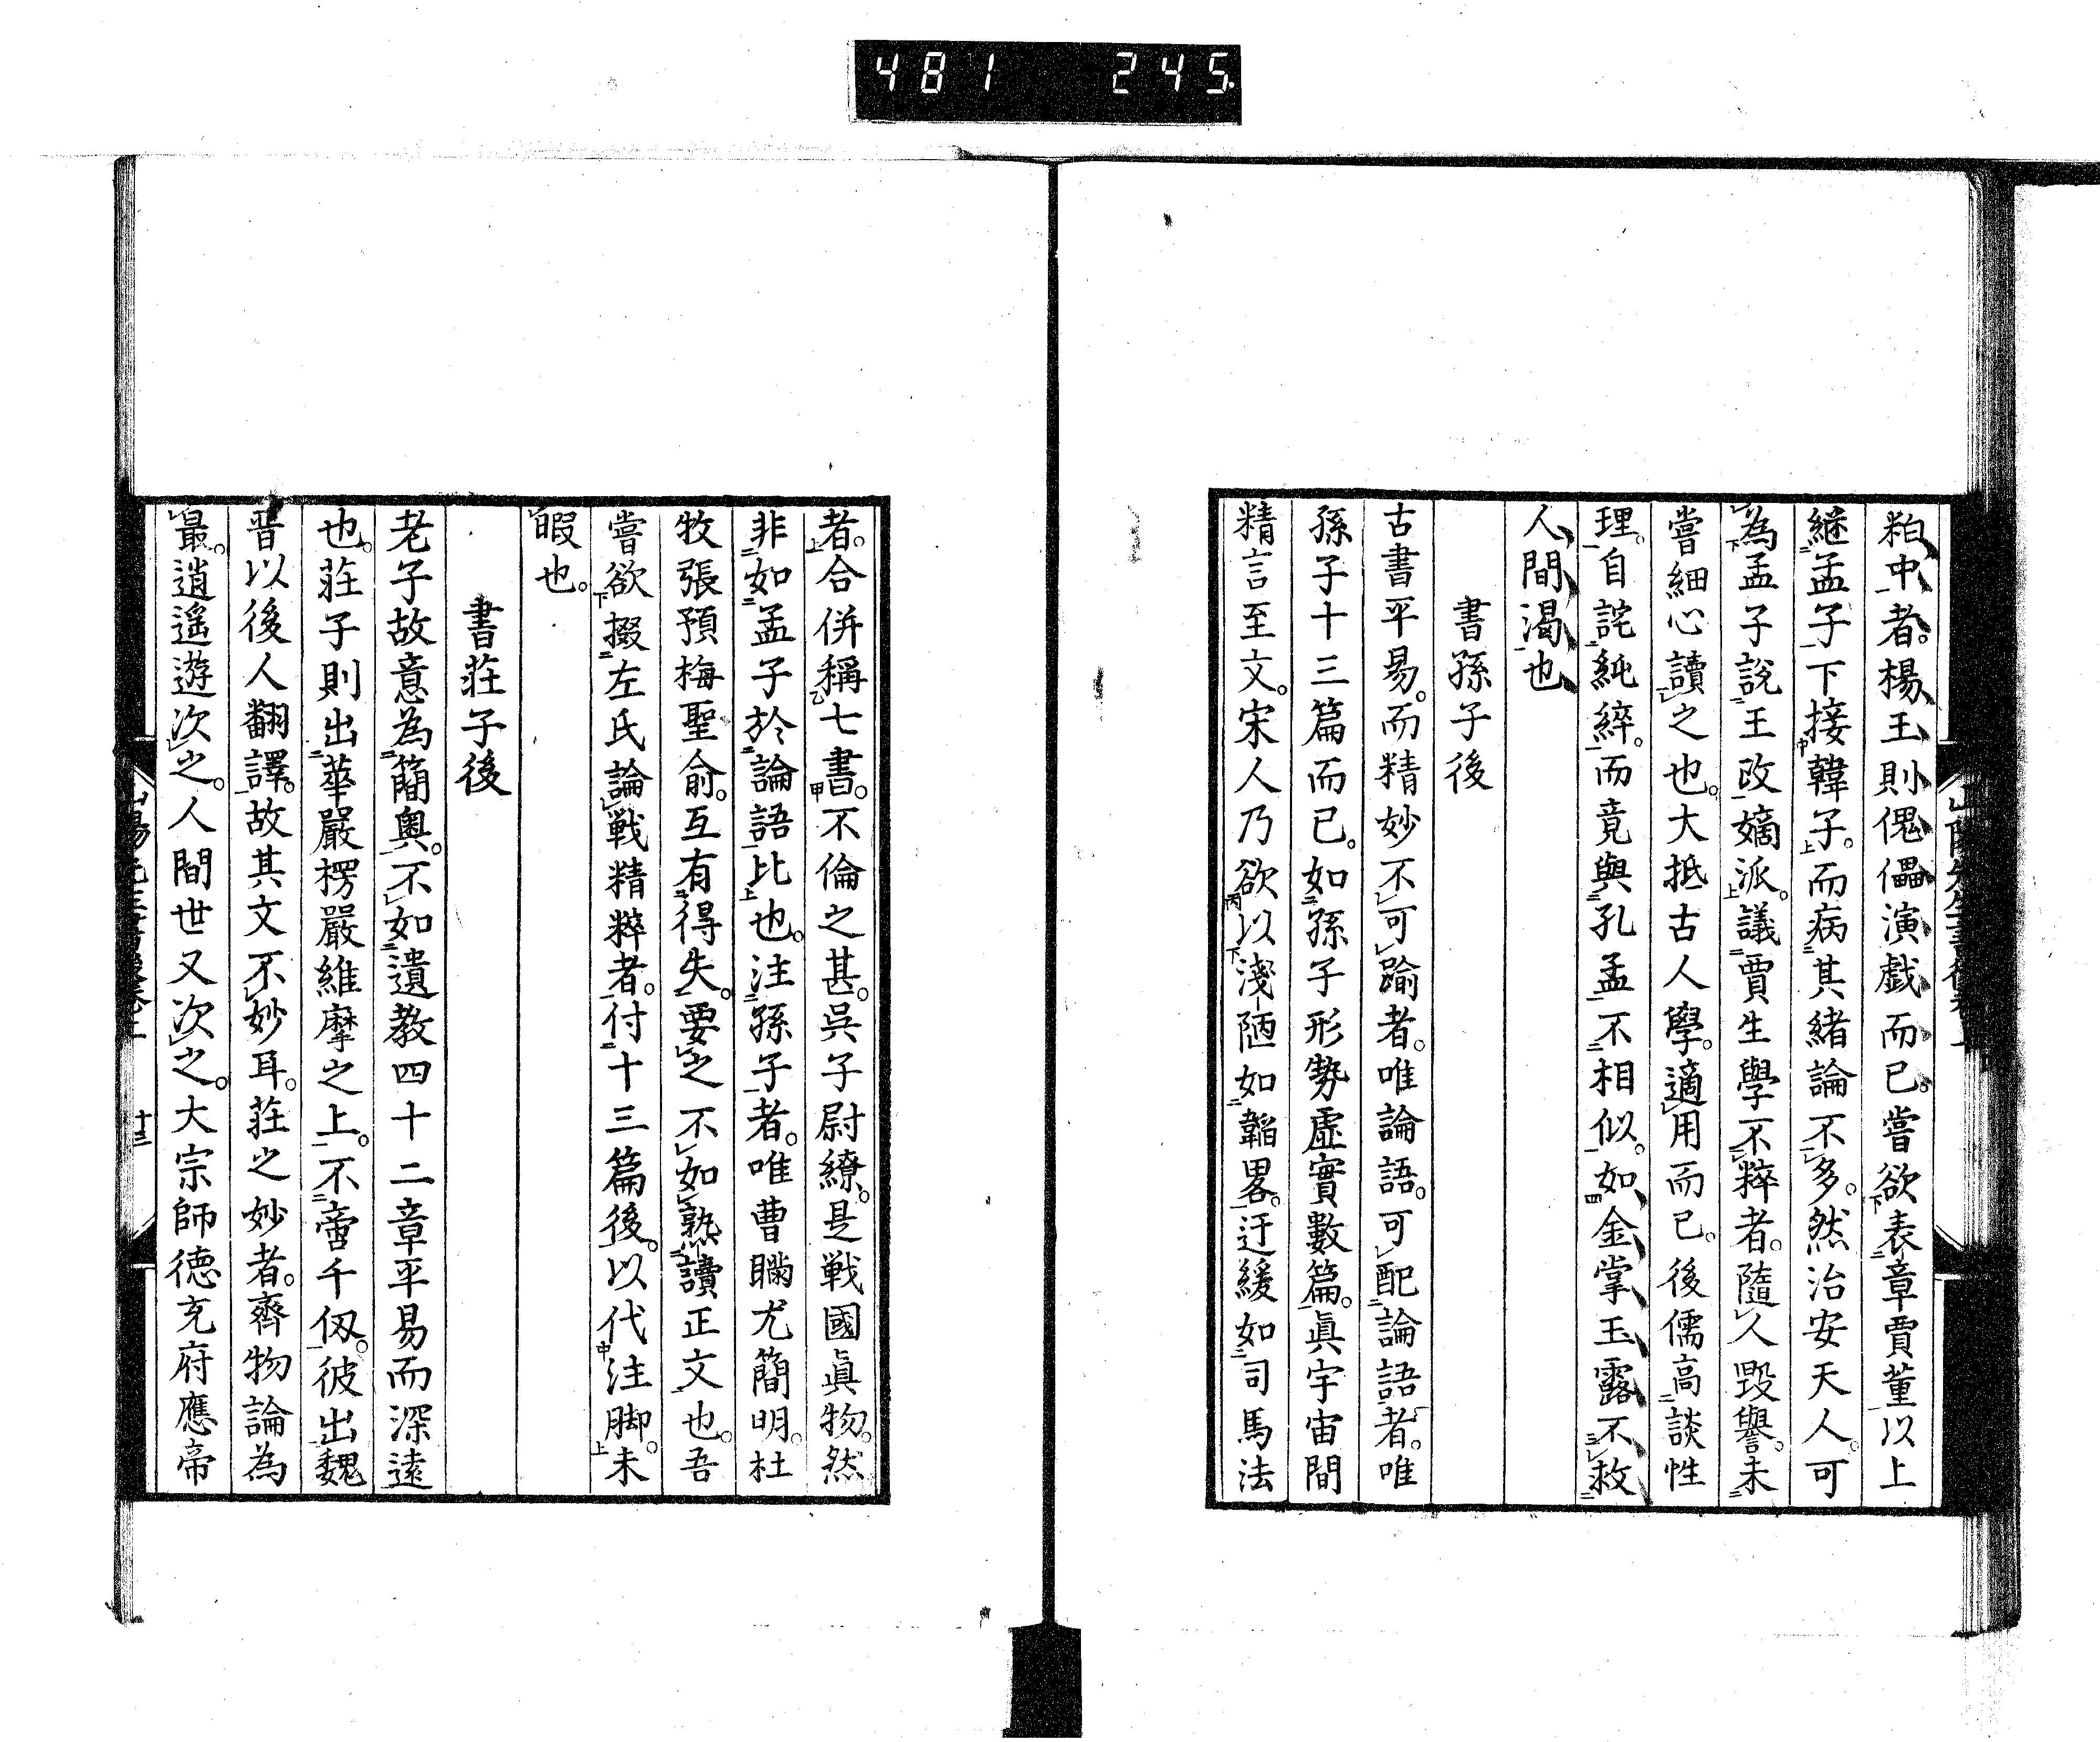 481 245
粕中者。楊王則傀儡演戯而已。嘗欲表章賈董以上
継孟子下接韓子。而病其緒論不多。然治安天人。可
為孟子説王政嫡派。議賈生學不粹者。隨人毀譽。未
嘗細心讀之也。大抵古人學。適用而已。後儒高談性
理。自詫純綷。而竟與孔孟不相似。如金掌玉露不救
人間渇也
書孫子後
古書平易。而精妙不可踰者。唯論語。可配論語者。唯
孫子十三篇而已。如孫子形勢虛實數篇。眞宇宙間
精言至文。宋人乃欲以淺陋如韜畧。迂緩如司馬法
者。合併稱七書。不倫之甚。吳子尉繚。是戦國眞物。然
非如孟子於論語比也。注孫子者。唯曹瞞尤簡明。杜
牧張預梅聖俞。互有得失。要之不如熟讀正文也。吾
嘗欲掇左氏論戦精粹者。付十三篇後。以代注脚。未
暇也。
書莊子後
老子故意為簡奥。不如遺教四十二章平易而深遠
也。莊子則出華嚴楞嚴維摩之上。不啻千仭。彼出魏
晋以後人翻譯。故其文不妙耳。莊之妙者。齊物論為
最。逍遙遊次之。人間世又次之。大宗師徳充府應帝